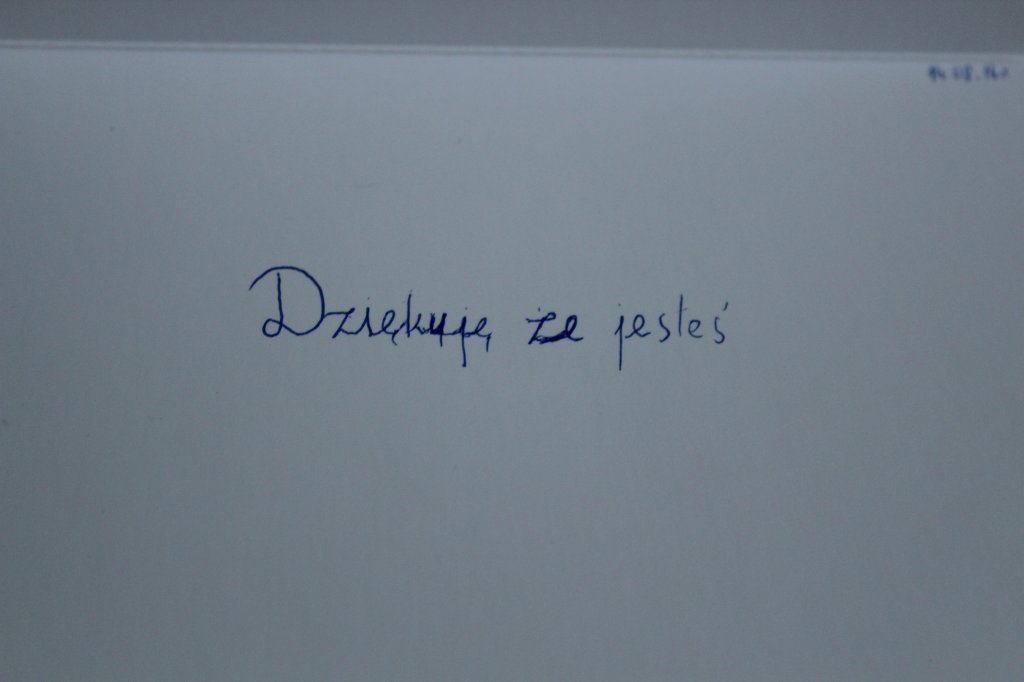 Dziękuję że jesteś